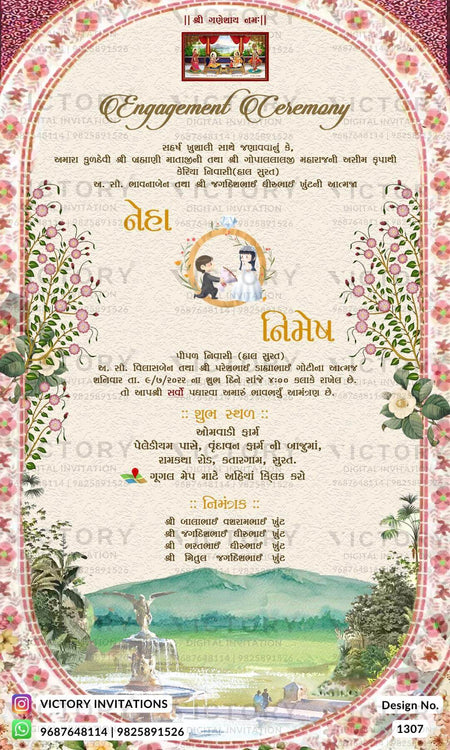 || श्री ગણેશાય નમઃ ||
Engagement Ceremony
સહર્ષ ખુશાલી સાથે જણાવવાનું કે,
અમારા કુળદેવી શ્રી બ્રહ્માણી માતાજીની તથા શ્રી ગોપાલલાલજી મહારાજની અસીમ કૃપાથી
કેરિયા નિવાસી(હાલ સુરત)
અ. સૌ. ભાવનાબેન તથા શ્રી જગદિશભાઈ ધીરુભાઈ ખુંટની આત્મજા
નેહા
નિમેષ
પીપળ નિવાસી (હાલ સુરત)
અ. સૌ. વિલાસબેન તથા શ્રી પરેશભાઈ ડાહ્યાભાઈ ગોટીના આત્મજ
શનિવાર તા. ૯/૭/૨૦૨૨ ના શુભ દિને સાંજે ૪:૦૦ કલાકે રાખેલ છે.
તો આપશ્રી સર્વો પધારવા અમારું ભાવભર્યું આમંત્રણ છે.
:: શુભ સ્થળ ::
ઓમવાડી ફાર્મ
પેલેડીયમ પાસે, વૃંદાવન ફાર્મ ની બાજુમાં,
રામકથા રોડ, કતારગામ, સુરત.
ગૂગલ મેપ માટે અહિંયાં ક્લિક કરો
:: નિમંત્રક ::
શ્રી બાલાભાઈ વશરામભાઈ ખુંટ
શ્રી જગદિશભાઈ ધીરુભાઈ ખુંટ
શ્રી ભરતભાઈ ધીરુભાઈ ખુંટ
શ્રી મિતુલ જગદિશભાઈ ખુંટ
VICTORY INVITATIONS
9687648114 | 9825891526
Design No.
1307
VICTORY
DIGITAL INVITATION
9687648114 | 9825891526